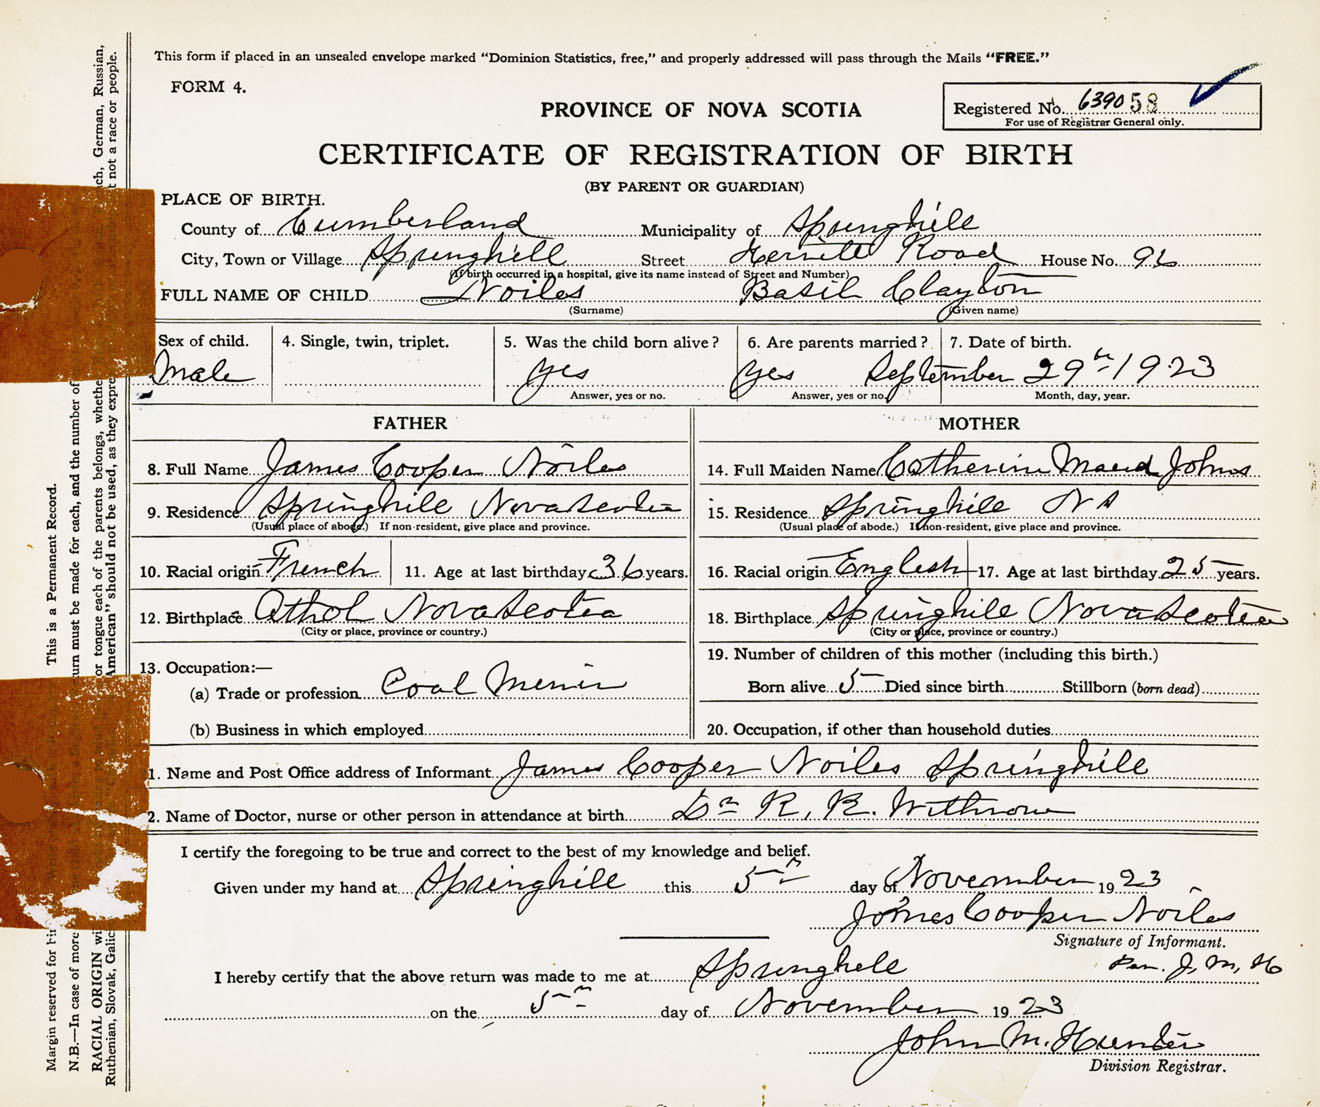 This form if placed in an unsealed envelope marked "Dominion Statistics, free," and properly addressed will pass through the Mails "FREE."
FORM 4.
Registered No. 639058
For use of Registrar General only.
PROVINCE OF NOVA SCOTIA
CERTIFICATE OF REGISTRATION OF BIRTH
(BY PARENT OR GUARDIAN)
PLACE OF BIRTH.
County of Cumberland Municipality of Springhill
City, Town or Village Springhill Street Herrett Road House No. 96
(If birth occurred in a hospital, give its name instead of Street and Number)
FULL NAME OF CHILD Noiles Basil Clayton
(Surname) (Given name)
Sex of child. 4. Single, twin, triplet. 5. Was the child born alive? 6. Are parents married? 7. Date of birth.
Male yes yes September 29th 1923
Answer, yes or no. Answer, yes or no. Month, day, year.
FATHER MOTHER
8. Full Name James Cooper Noiles 14. Full Maiden Name Catherin Maud Johns
9. Residence Springhill Nova Scotia 15. Residence Springhill N S
(Usual place of abode.) If non-resident, give place and province. (Usual place of abode.) If non-resident, give place and province.
10. Racial origin French 11. Age at last birthday 36 years. 16. Racial origin English 17. Age at last birthday 25 years.
12. Birthplace Athol Nova Scotia 18. Birthplace Springhill Nova Scotia
(City or place, province or country.) (City or place, province or country.)
13. Occupation:— 19. Number of children of this mother (including this birth.)
(a) Trade or profession Coal Miner Born alive 5 Died since birth Stillborn (born dead)
(b) Business in which employed 20. Occupation, if other than household duties
1. Name and Post Office address of Informant James Cooper Noiles Springhill
2. Name of Doctor, nurse or other person in attendance at birth Dr R. R. Withrow
I certify the foregoing to be true and correct to the best of my knowledge and belief.
Given under my hand at Springhill this 5th day of November 1923
James Cooper Noiles
Signature of Informant.
Per. J. M. H
I hereby certify that the above return was made to me at Springhill
on the 5th day of November 1923
John M. Hunter
Division Registrar.
Margin reserved for This is a Permanent Record.
N.B.—In case of more urn must be made for each, and the number of
RACIAL ORIGIN wi or tongue each of the parents belongs, whethe ch, German, Russian,
Ruthenian, Slovak, Galic American" should not be used, as they expre t not a race or people.